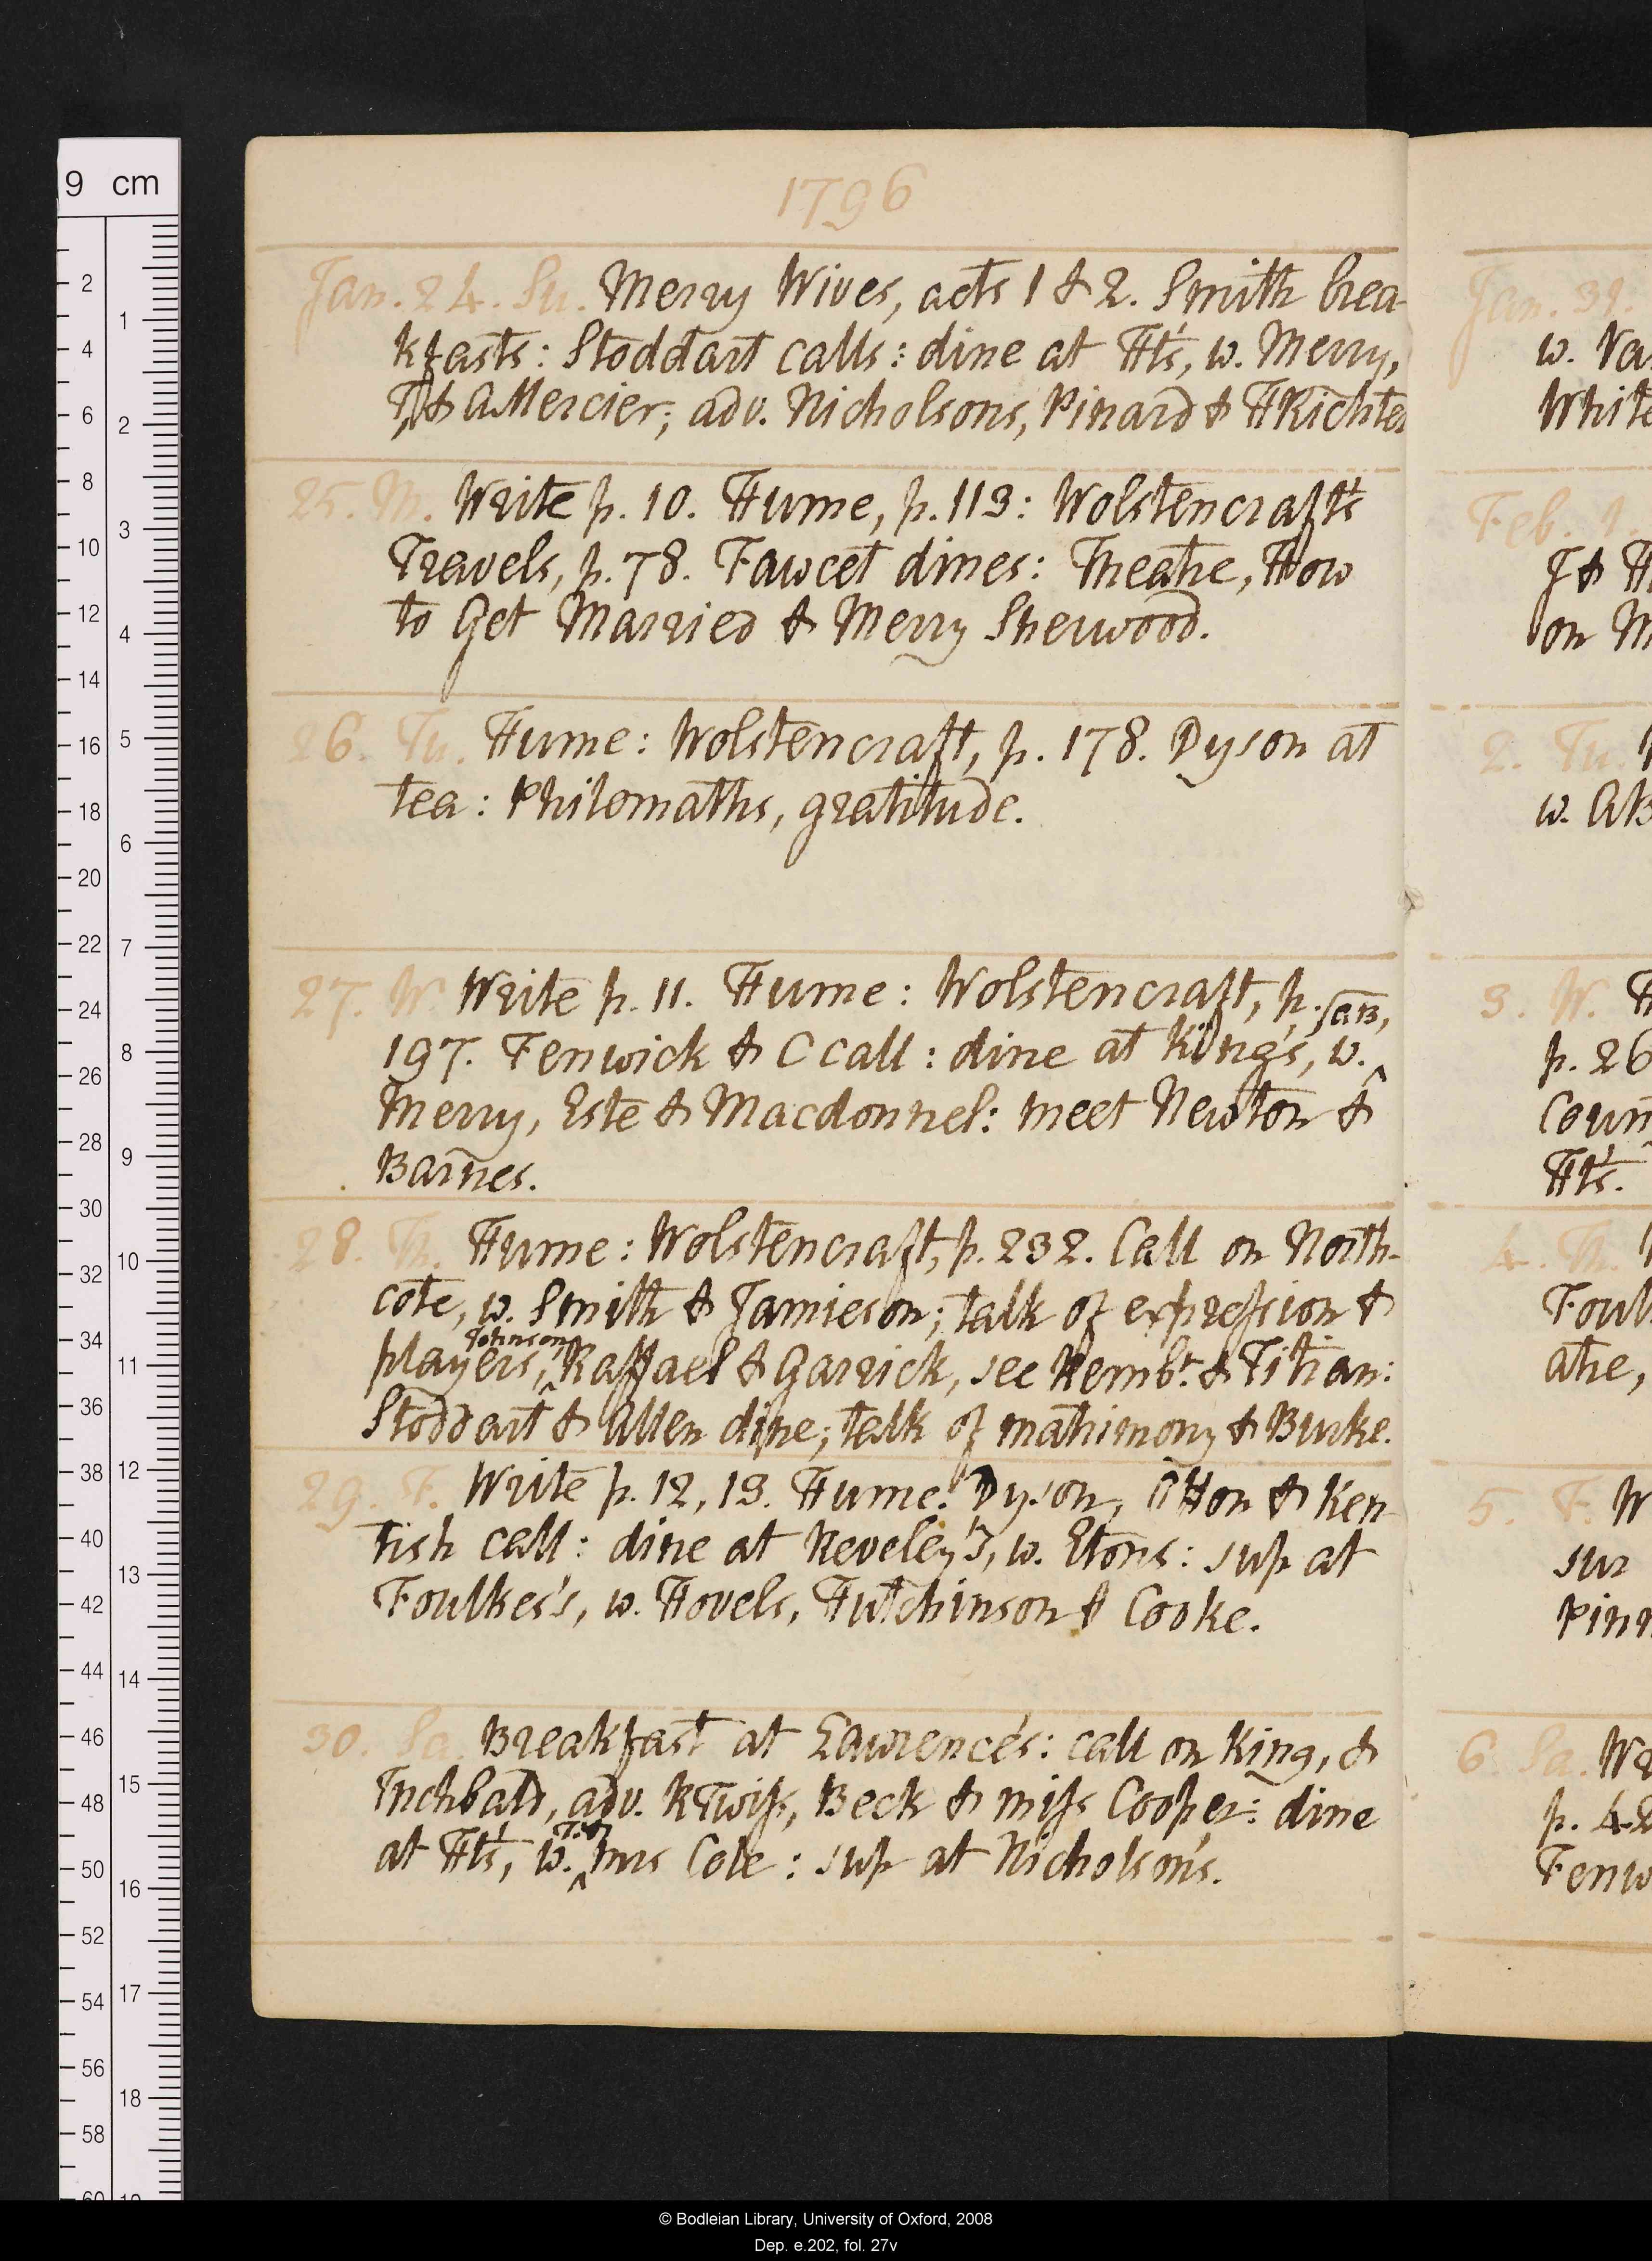 1796
Jan. 24. Su. Merry Wives, acts 1 & 2. Smith brea-
kfasts: Stoddart calls: dine at Ht's, w. Merry,
& AMercier; adv. Nicholsons, Pinard & HRichter
25. M. Write p. 10. Hume, p. 113: Wolstencraft's
Travels, p. 78. Fawcet dines: Theatre, How
to Get Married & Merry Sherwood.
26. Tu. Hume: Wolstencraft, p. 178. Dyson at
tea: Philomaths, gratitude.
27. W. Write p. 11. Hume: Wolstencraft, p.
197. Fenwick & C call: dine at King's, w. ^
Merry, Este & Macdonnel: meet Newton &
Barnes.
28. Th. Hume: Wolstencraft, p. 232. Call on North-
cote, w. Smith & Jamieson; talk of expression &
players, ^Johnson, Raffael & Garrick, see Rembt. & Titian:
Stoddart & Allen dine; talk of matrimony & Burke.
29. F. Write p. 12, 13. Hume. Dyson, & Ken-
tish call: dine at Reveley's, w. Etons: sup at
Foulkes's, w. Hovels, Hutchinson & Cooke.
30. Sa. Breakfast at Lawrence's: call on King, &
Inchbald, adv. RTwiss, Beck & miss Cooper: dine
at Ht's, w. ^ mrs Cole: sup at Nicholson's.
Jan. 31.
w.
White
Feb. 1.
J & H
on M
2. Tu.
w. AB
3. W. H
p. 26
Coun
Ht's.
4. Th.
Foul
atre,
5. F. W
sur
Pinn
6. Sa. Wr
p. 42
Fenw
9 cm
2 4 6 8 10 12 14 16 18 20 22 24 26 28 30 32 34 36 38 40 42 44 46 48 50 52 54 56 58 60
1 2 3 4 5 6 7 8 9 10 11 12 13 14 15 16 17 18
© Bodleian Library, University of Oxford, 2008
Dep. e.202, fol. 27v